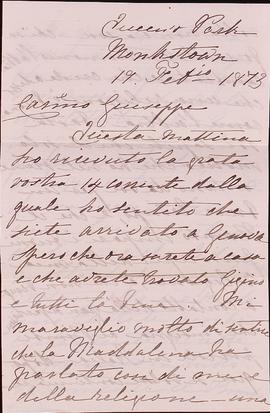 Park
Monkstown
19. Feb.io 1873
Carmo Giuseppe
Questa mattina
ho ricevuto la grata
vostra 14 corrente dalla
quale ho sentito che
siete arrivato a Genova
spero che ora sarete a casa
e che avrete trovato Gigino
e tutti la . Mi
maraviglio molto di sentire
che la Maddalena ha
parlato così di me e
della religione – una